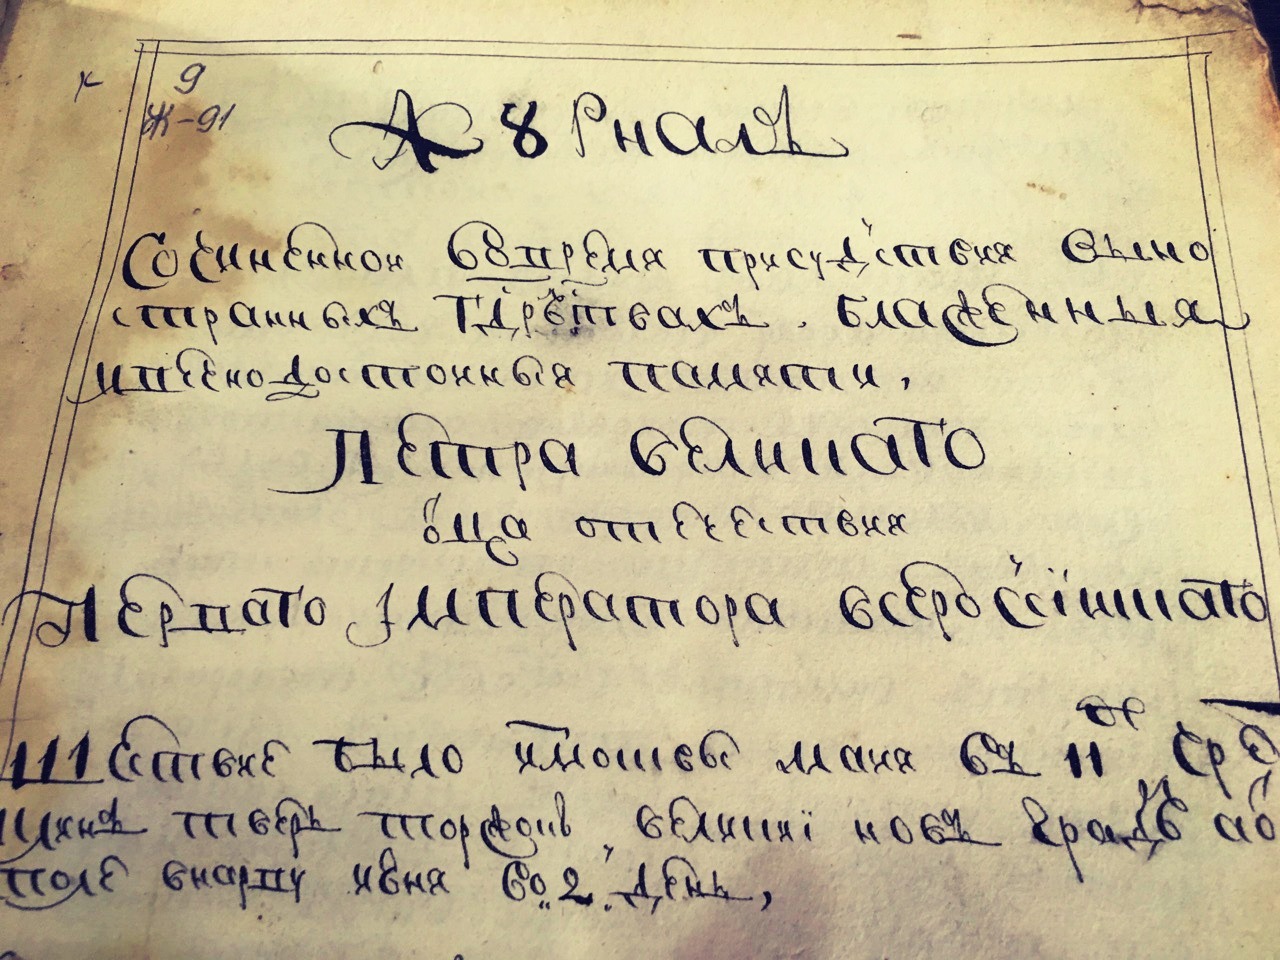 9
Ж-91
Жꙋрналъ
Сочиненной вовремя присудствия выно
странныхъ Гдрствахъ. блаженныя
ивечнодостойныя памяти,
Петра великаго
оца отечествия
Перваго Императора всеросиискаго
Шествие было измосквы маия въ 11
тверь торжокъ, великиі новъ градъ
внарву июня во 2. день,